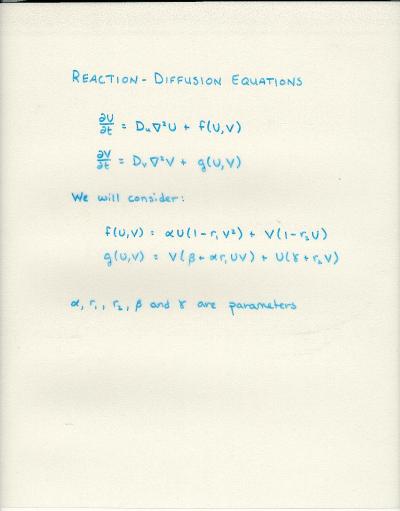 REACTION-DIFFUSION EQUATIONS
∂U/∂t = Du∇²U + f(U,V)
∂V/∂t = Dv∇²V + g(U,V)
We will consider:
f(U,V) = αU(1-r₁V²) + V(1-r₂U)
g(U,V) = V(β+αr₁UV) + U(γ+r₂V)
α, r₁, r₂, β and γ are parameters